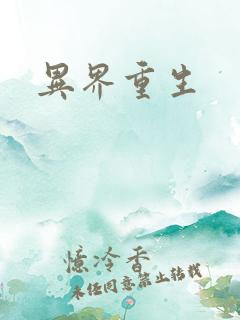 異界重生
憶冷香
未经同意禁止转载